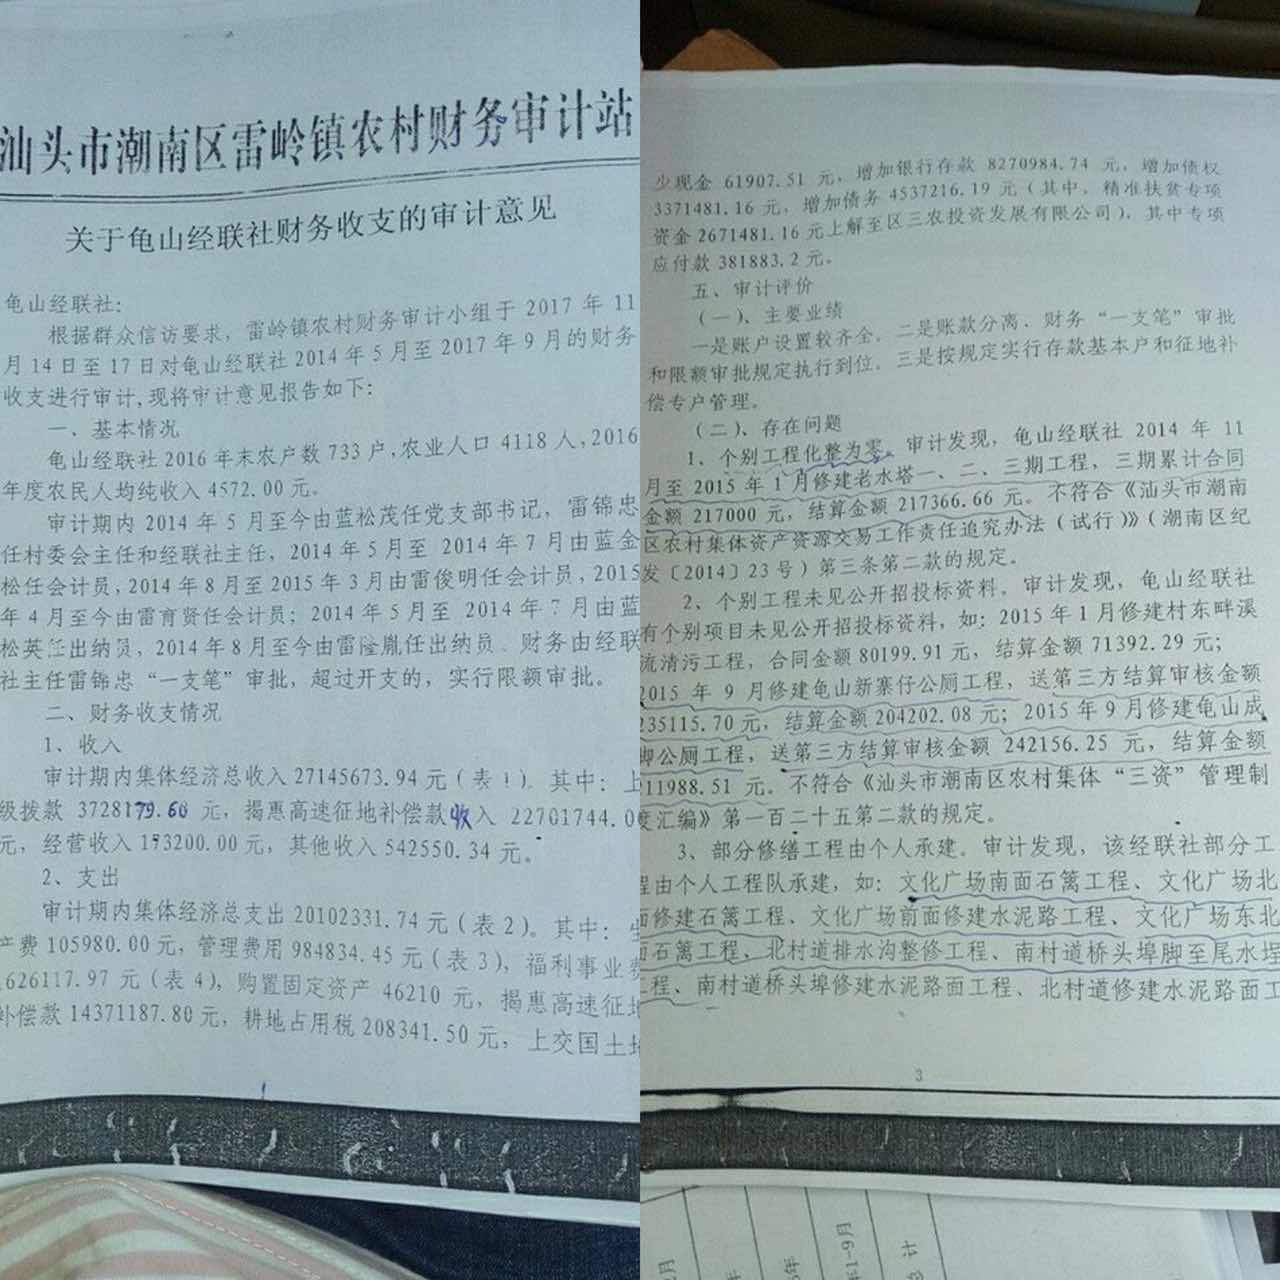 汕头市潮南区雷岭镇农村财务审计站
关于龟山经联社财务收支的审计意见
龟山经联社:
根据群众信访要求，雷岭镇农村财务审计小组于 2017 年 11
月 14 日至 17 日对龟山经联社 2014 年 5 月至 2017 年 9 月的财务
收支进行审计,现将审计意见报告如下:
一、基本情况
龟山经联社 2016 年末农户数 733 户,农业人口 4118 人,2016
年度农民人均纯收入 4572.00 元。
审计期内 2014 年 5 月至今由蓝松茂任党支部书记，雷锦忠
任村委会主任和经联社主任，2014 年 5 月至 2014 年 7 月由蓝金
松任会计员,2014 年 8 月至 2015 年 3 月由雷俊明任会计员,2015
年 4 月至今由雷育贤任会计员；2014 年 5 月至 2014 年 7 月由蓝
松英任出纳员，2014 年 8 月至今由雷隆胤任出纳员。财务由经联
社主任雷锦忠“一支笔”审批，超过开支的，实行限额审批。
二、财务收支情况
1、收入
审计期内集体经济总收入 27145673.94 元（表 1）。其中：上
级拨款 3728179.60 元，揭惠高速征地补偿款收入 22701744.0
元，经营收入 173200.00 元，其他收入 542550.34 元。
2、支出
审计期内集体经济总支出 20102331.74 元（表 2）。其中：生
产费 105980.00 元，管理费用 984834.45 元（表 3），福利事业费
626117.97 元（表 4），购置固定资产 46210 元，揭惠高速征地
补偿款 14371187.80 元，耕地占用税 208341.50 元，上交国土地
1
少现金 61907.51 元，增加银行存款 8270984.74 元，增加债权
3371481.16 元，增加债务 4537216.19 元（其中，精准扶贫专项
资金 2671481.16 元上解至区三农投资发展有限公司），其中专项
应付款 381883.2 元。
五、审计评价
（一）、主要业绩
一是账户设置较齐全，二是账款分离，财务“一支笔”审批
和限额审批规定执行到位，三是按规定实行存款基本户和征地补
偿专户管理。
（二）、存在问题
1、个别工程化整为零。审计发现，龟山经联社 2014 年 11
月至 2015 年 1 月修建老水塔一、二、三期工程，三期累计合同
金额 217000 元，结算金额 217366.66 元。不符合《汕头市潮南
区农村集体资产资源交易工作责任追究办法（试行）》（潮南区纪
发〔2014〕23 号）第三条第二款的规定。
2、个别工程未见公开招投标资料。审计发现，龟山经联社
有个别项目未见公开招投标资料，如：2015 年 1 月修建村东畔溪
流清污工程，合同金额 80199.91 元，结算金额 71392.29 元；
2015 年 9 月修建龟山新寨仔公厕工程，送第三方结算审核金额
235115.70 元，结算金额 204202.08 元；2015 年 9 月修建龟山成
脚公厕工程，送第三方结算审核金额 242156.25 元，结算金额
11988.51 元。不符合《汕头市潮南区农村集体“三资”管理制
度汇编》第一百二十五第二款的规定。
3、部分修缮工程由个人承建。审计发现，该经联社部分工
程由个人工程队承建，如：文化广场南面石篱工程、文化广场北
面修建石篱工程、文化广场前面修建水泥路工程、文化广场东北
面石篱工程、北村道排水沟整修工程、南村道桥头埠脚至尾水埕
工程、南村道桥头埠修建水泥路面工程、北村道修建水泥路面工
3
年1-9月
总 计